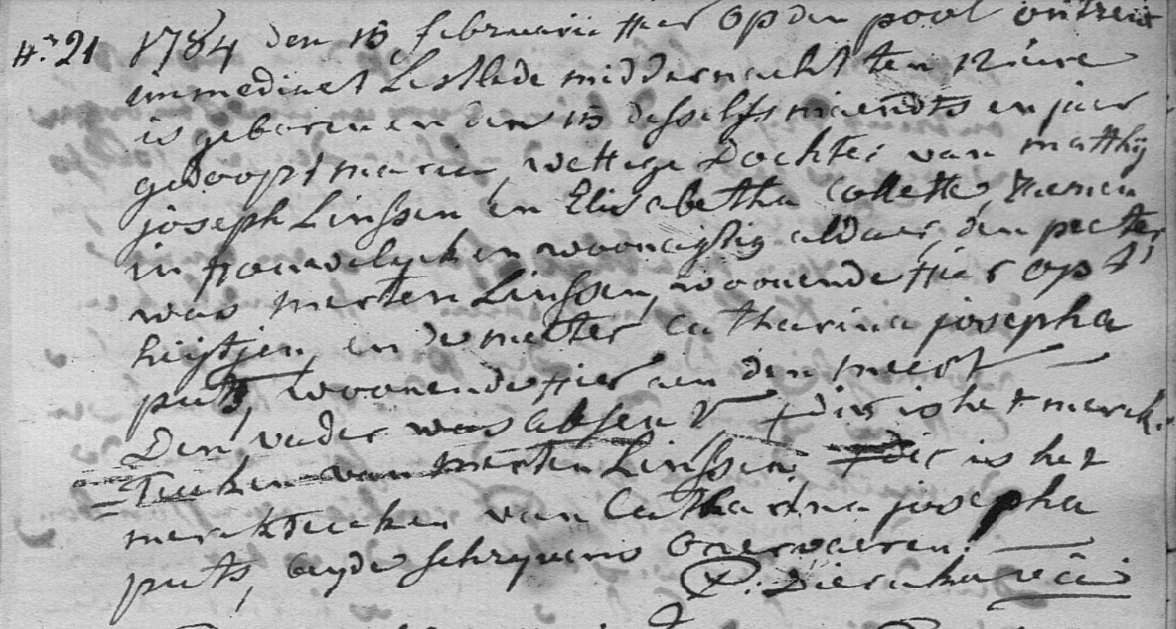 N.º 21 1784 den 13 februarii hier op den pool ontrent
immediaet Lestlede middernacht ten 12 uure
is geboren en den 13 desselfs maendts en jaer
gedoopt maria, wettige Dochter van matthij
joseph Linssen en Elisabetha Collette,
in houwelyck en woonagtig aldaer, den peeter
was merten Linssen, woonende hier op t'
heijtjen, en de meter Catharina josepha
puts, woonende hier aen den meest
Den vader was absent + dit is het merck
Teeken van merten Linssen + dit is het
merckteeken van Catharina josepha
puts, beyde schryvens onervaeren.
P.